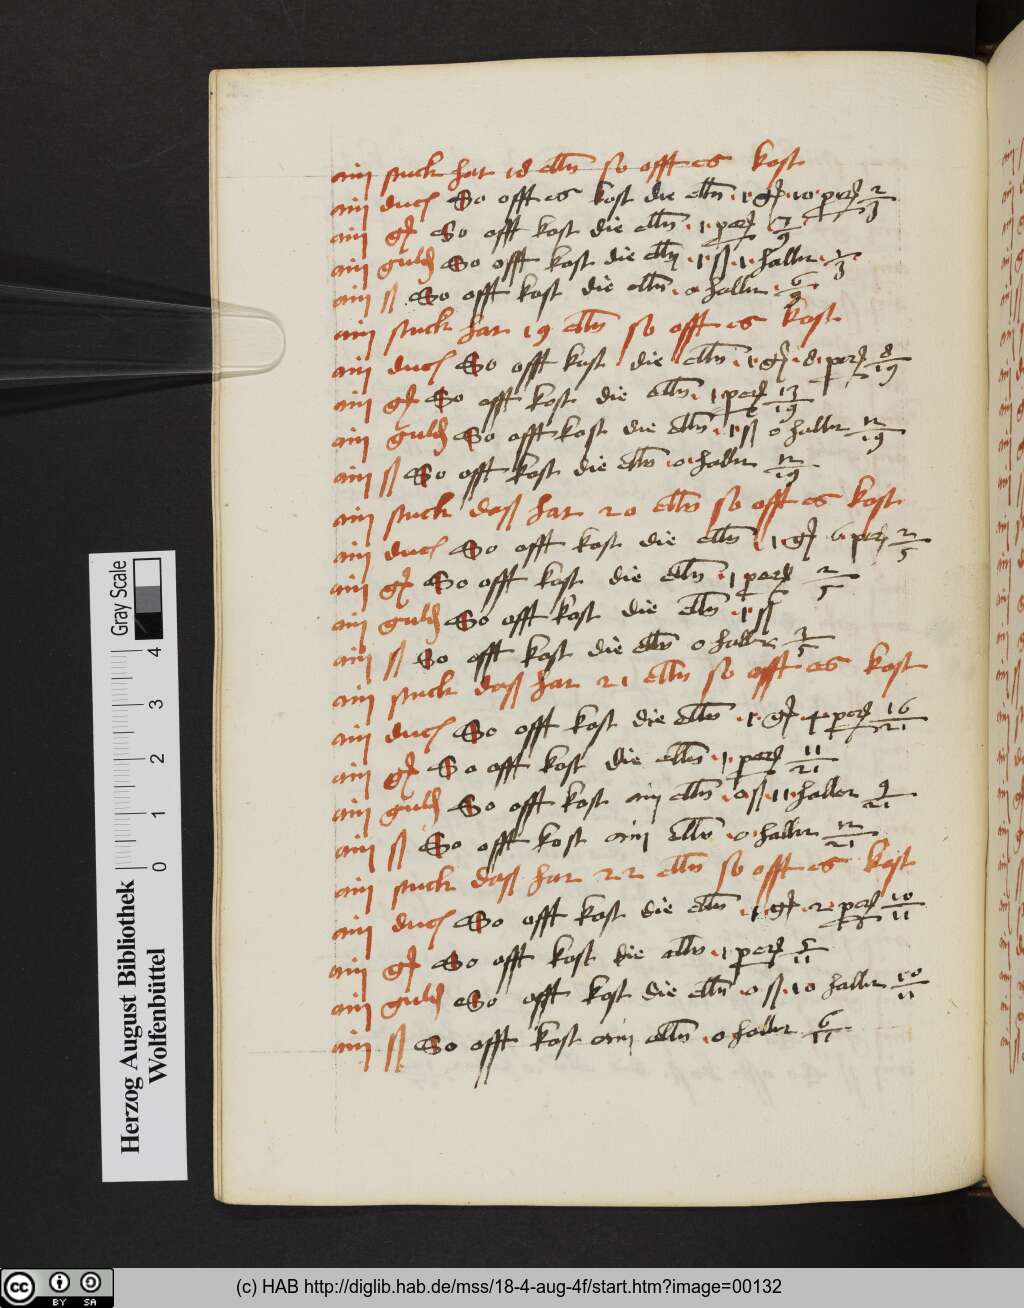 ain stuck hat 18 elln so offt es kost
ain duc So offt es kost die elln · 1 · gſ · 10 · perd 2/3
ain gſ So offt kost die elln · 1 · perd 7/9
ain guld So offt kost die elln · 1 ß · 1 · haller · 1/3
ain ß So offt kost die elln · 0 haller · 6/9
ain stuck hat 19 elln so offt es kost
ain duc So offt kost die elln · 1 · gſ · 8 · perd 8/19
ain gſ So offt kost die elln · 1 · perd 13/19
ain guld So offt kost die elln · 1 ß 0 haller 12/19
ain ß So offt kost die elln · 0 · haller 12/19
ain stuck daß hat 20 elln so offt es kost
ain duc So offt kost die elln · 1 · gſ 6 perd 2/5
ain gſ So offt kost die elln · 1 perd 2/5
ain guld So offt kost die elln · 1 ß
ain ß So offt kost die elln 0 haller 3/5
ain stuck daß hat 21 elln so offt es kost
ain duc So offt kost die elln · 1 · gſ 4 · perd 16/21
ain gſ So offt kost die elln · 1 · perd 11/21
ain guld So offt kost ain elln · 0 ß · 11 · haller 9/21
ain ß So offt kost ain elln · 0 · haller 12/21
ain stuck daß hat 22 elln so offt es kost
ain duc So offt kost die elln · 1 · gſ · 2 · perd 10/11
ain gſ So offt kost die elln · 1 perd 5/11
ain guld So offt kost die elln · 0 ß · 10 haller 10/11
ain ß So offt kost ain elln · 0 haller 6/11
Gray Scale
0 1 2 3 4
Herzog August Bibliothek
Wolfenbüttel
cc BY SA
(c) HAB http://diglib.hab.de/mss/18-4-aug-4f/start.htm?image=00132